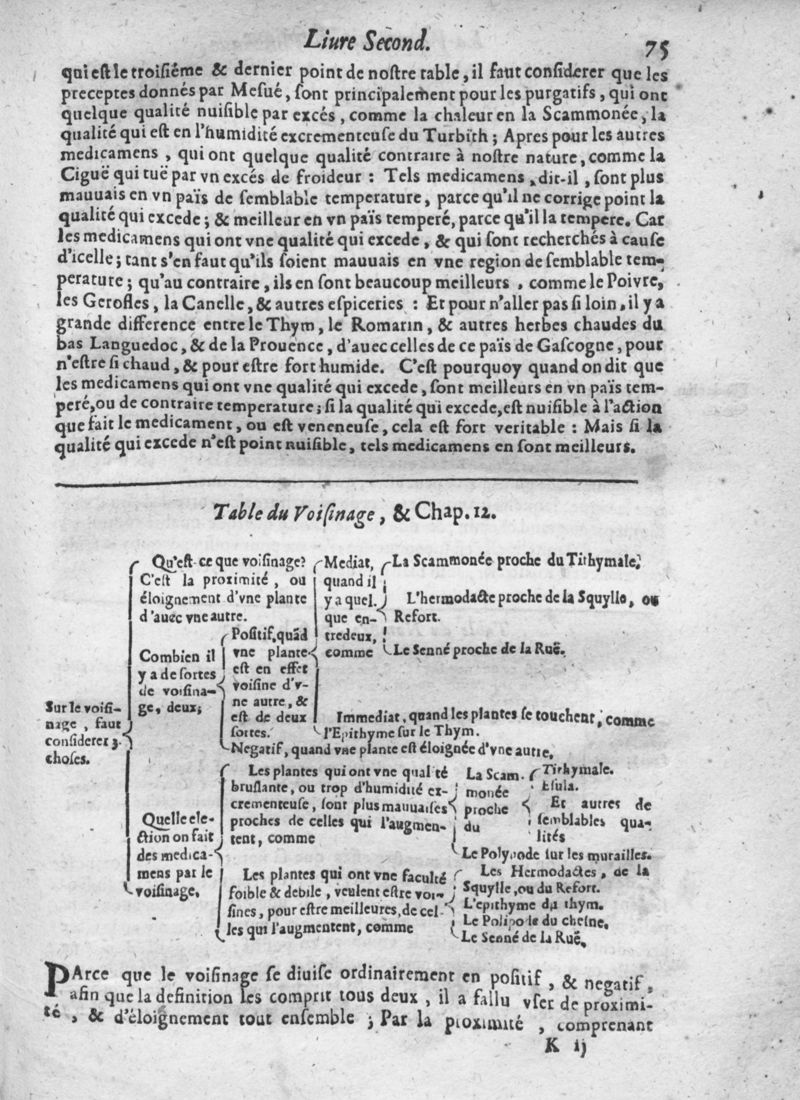 Liure Second. 75
qui est le troisiéme & dernier point de nostre table, il faut considerer que les
preceptes donnés par Mesué, sont principalement pour les purgatifs, qui ont
quelque qualité nuisible par excés, comme la chaleur en la Scammonée, la
qualité qui est en l'humidité excrementeuse du Turbith; Apres pour les autres
medicamens, qui ont quelque qualité contraire à nostre nature, comme la
Ciguë qui tuë par vn excés de froideur : Tels medicamens, dit-il, sont plus
mauuais en vn païs de semblable temperature, parce qu'il ne corrige point la
qualité qui excede; & meilleur en vn païs temperé, parce qu'il la tempere. Car
les medicamens qui ont vne qualité qui excede, & qui sont recherchés à cause
d'icelle; tant s'en faut qu'ils soient mauuais en vne region de semblable tem-
perature; qu'au contraire, ils en sont beaucoup meilleurs, comme le Poivre,
les Gerofles, la Canelle, & autres espiceries : Et pour n'aller pas si loin, il y a
grande difference entre le Thym, le Romarin, & autres herbes chaudes du
bas Languedoc, & de la Prouence, d'auec celles de ce païs de Gascogne, pour
n'estre si chaud, & pour estre fort humide. C'est pourquoy quand on dit que
les medicamens qui ont vne qualité qui excede, sont meilleurs en vn païs tem-
peré, ou de contraire temperature; si la qualité qui excede, est nuisible à l'action
que fait le medicament, ou est veneneuse, cela est fort veritable : Mais si la
qualité qui excede n'est point nuisible, tels medicamens en sont meilleurs.
Table du Voisinage, & Chap. 12.
Sur le voisi-
nage, faut
considerer 3.
choses.
Qu'est-ce que voisinage?
C'est la proximité, ou
éloignement d'vne plante
d'auec vne autre.
Combien il
y a de sortes
de voisina-
ge, deux;
Positif, quãd
vne plante
est en effet
voisine d'v-
ne autre, &
est de deux
sortes.
Mediat,
quand il
y a quel-
que en-
tredeux,
comme
La Scammonée proche du Tithymale.
L'hermodacte proche de la Squylle, ou
Refort.
Le Senné proche de la Ruë.
Immediat, quand les plantes se touchent, comme
l'Epithyme sur le Thym.
Negatif, quand vne plante est éloignée d'vne autre,
Quelle ele-
ction on fait
des medica-
mens par le
voisinage,
Les plantes qui ont vne qualité
bruslante, ou trop d'humidité ex-
crementeuse, sont plus mauuaises
proches de celles qui l'augmen-
tent, comme
La Scam-
monée
proche
du
Tithymale.
Esula.
Et autres de
semblables qua-
lités
Le Polypode sur les murailles.
Les plantes qui ont vne faculté
foible & debile, veulent estre voi-
sines, pour estre meilleures, de cel-
les qui l'augmentent, comme
Les Hermodactes, de la
Squylle, ou du Refort.
L'epithyme du thym.
Le Polipode du chesne,
Le Senné de la Ruë,
PArce que le voisinage se diuise ordinairement en positif, & negatif,
afin que la definition les comprit tous deux, il a fallu vser de proximi-
té, & d'éloignement tout ensemble; Par la proximité, comprenant
K ij